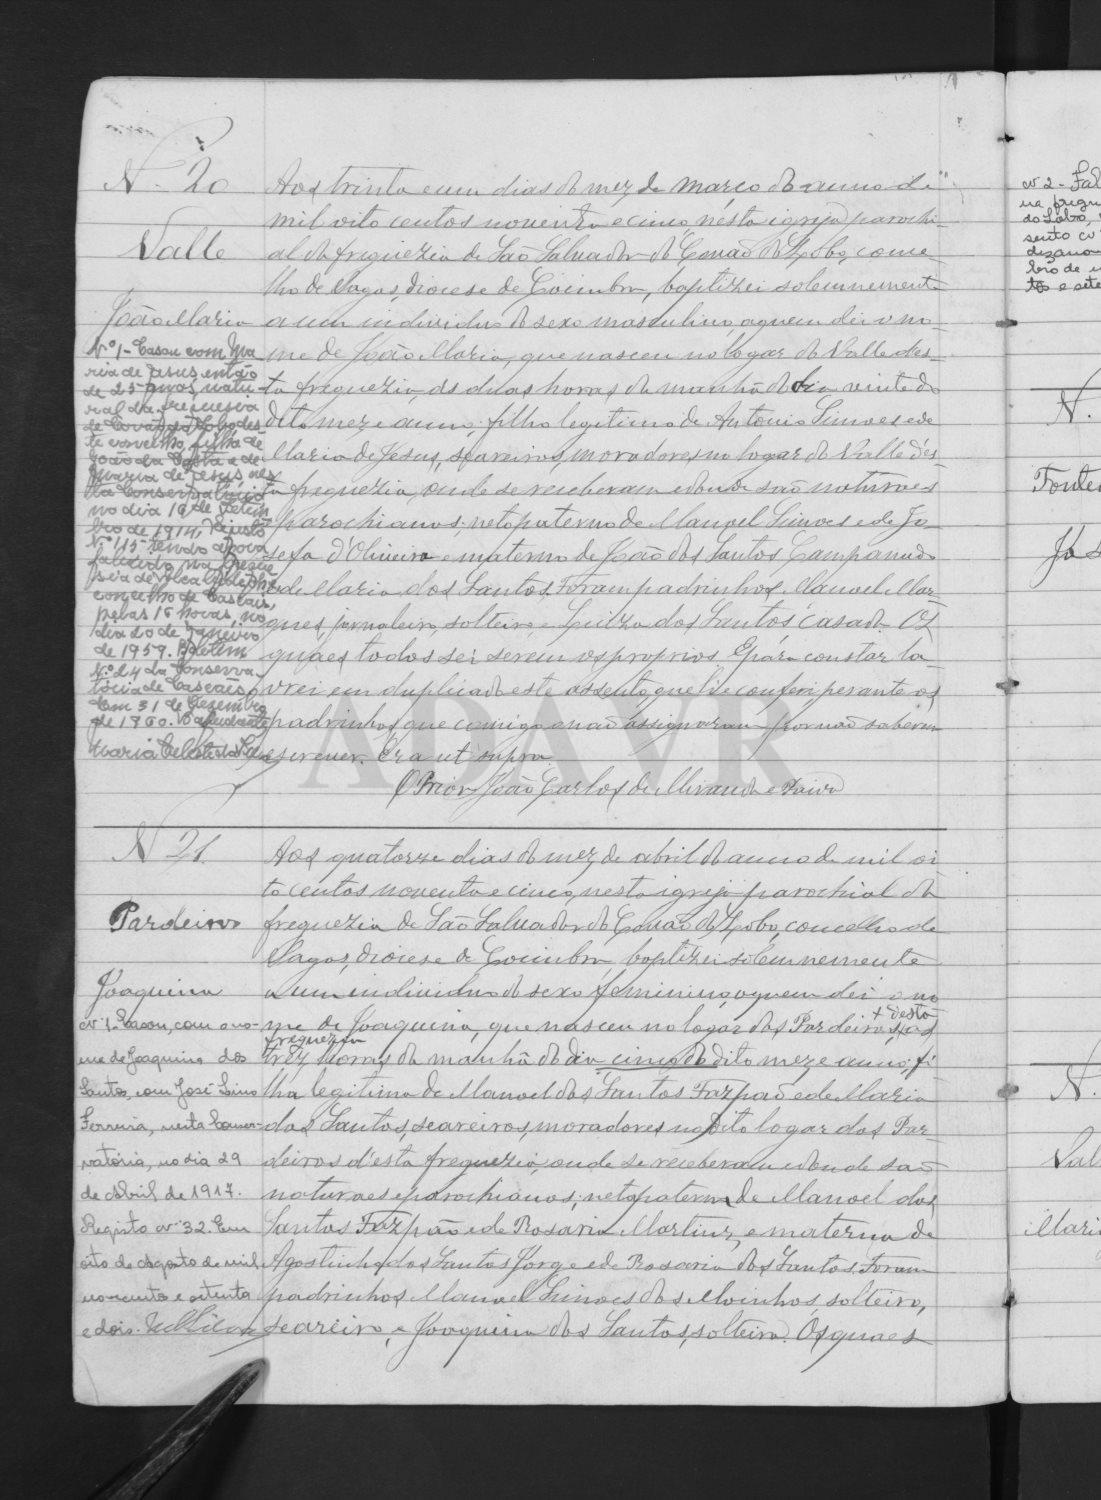 N. 20
Valle
João Maria
Nº 1 - Casou com Ma-
ria de Jesus, então
de 23 anos, natu-
ral da freguesia
de Covão do Lobo, des-
te concelho, filha de
João da Costa e de
Maria de Jesus, nes-
ta Conservatória
no dia
bro de 1914, Registo
Nº 115. Tendo
falecido na fregue-
sia de
concelho de Cascais,
pelas 16 horas, no
dia 20 de Janeiro
de 1959. Boletim
Nº 24 da Conserva-
tória de Cascais,
Em 31 de Dezembro
de 1960. O Ajudante,
Maria Celeste
Aos trinta e um dias do mez de março do anno de
mil oito centos noventa e cinco, n'esta igreja parochi-
al da freguezia de São Salvador do Covão do Lobo, conce-
lho de Vagos, diocese de Coimbra, baptizei solemnemente
a um individuo do sexo masculino, a quem dei o no-
me de João Maria, que nasceu no logar do Valle des-
ta freguezia, ás duas horas da manhã do dia vinte do
dito mez e anno, filho legitimo de Antonio Simoes e de
Maria de Jesus, seareiros, moradores no logar do Valle d'es-
ta freguezia, onde se receberam e donde são naturaes
e parochianos; neto paterno de Manoel Simoes e de Jo-
sefa d'Oliveira e materno de João dos Santos Campanudo
e de Maria dos Santos. Foram padrinhos, Manoel Mar-
ques, jornaleiro, solteiro, e Luiza dos Santos casada. Os
quaes todos sei serem os proprios. E pára constar la-
vrei em duplicado este assento, que li e conferi perante os
padrinhos, que comigo o não assignaram por não saberem
escrever. Era ut supra.
O Prior João Carlos de Miranda e Paiva
N 21.
Pardeiros
Joaquina
Nº 1. Casou, com o no-
me de Joaquina dos
Santos, com José Lino
Ferreira, nesta Conser-
vatória, no dia 29
de Abril de 1917.
Registo nº 32. Em
oito de Agosto de mil
novecentos e oitenta
e dois.
Aos quatorze dias do mez de abril do anno de mil oi-
to centos noventa e cinco, nesta igreja parochial da
freguezia de São Salvador do Covão do Lobo, concelho de
Vagos, diocese de Coimbra, baptizei solemnemente
a um individuo do sexo feminino, a quem dei o no-
me de Joaquina, que nasceu no logar dos Pardeiros, + desta ás
freguezia
trez horas da manhã do dia cinco do dito mez e anno, fi-
lha legitima de Manoel dos Santos Farpão e de Maria
dos Santos, seareiros, moradores no dito logar dos Par-
deiros d'esta freguezia, onde se receberam e donde são
naturaes e parochianos; neta paterna de Manoel dos
Santos Farpão e de Rosaria Martins, e materna de
Agostinho dos Santos Jorge e de Rosaria dos Santos. Foram
padrinhos Manoel Simoes dos Moinhos, solteiro,
seareiro, e Joaquina dos Santos, solteira. Os quaes
ADAVR